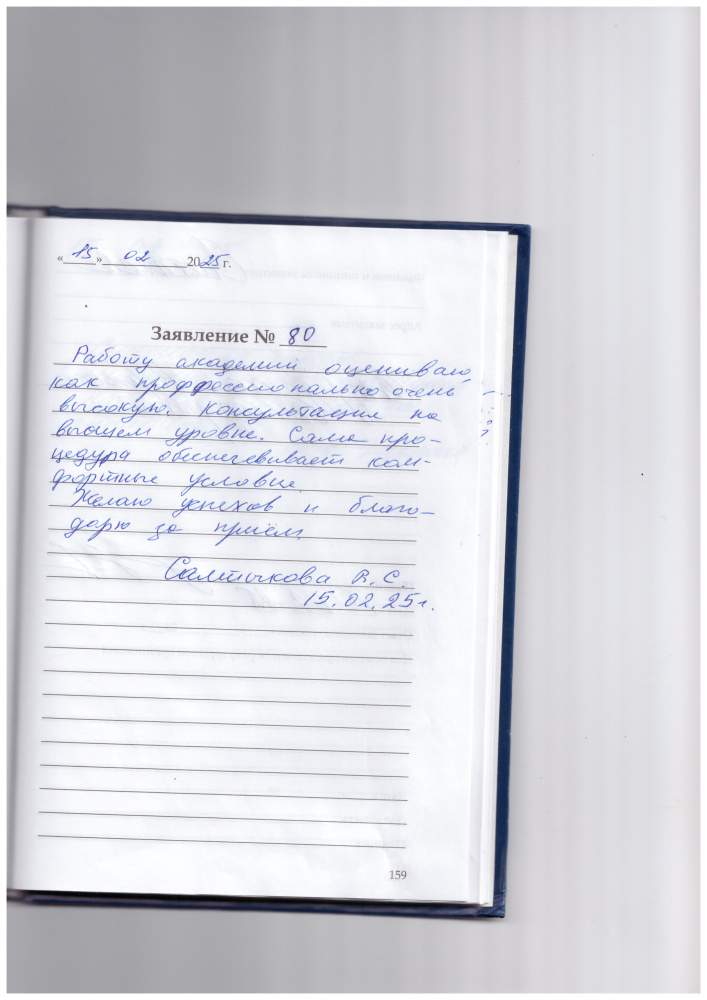 « 15 » 02 2025 г.
Заявление № 80
Работу академии оцениваю
как проффессионально очень
высокую. Консультация на
высшем уровне. Сама про-
цедура обеспечивает ком-
фортные условия.
Желаю успехов и благо-
дарю за приём.
Салтыкова В. С.
15.02.25г.
159